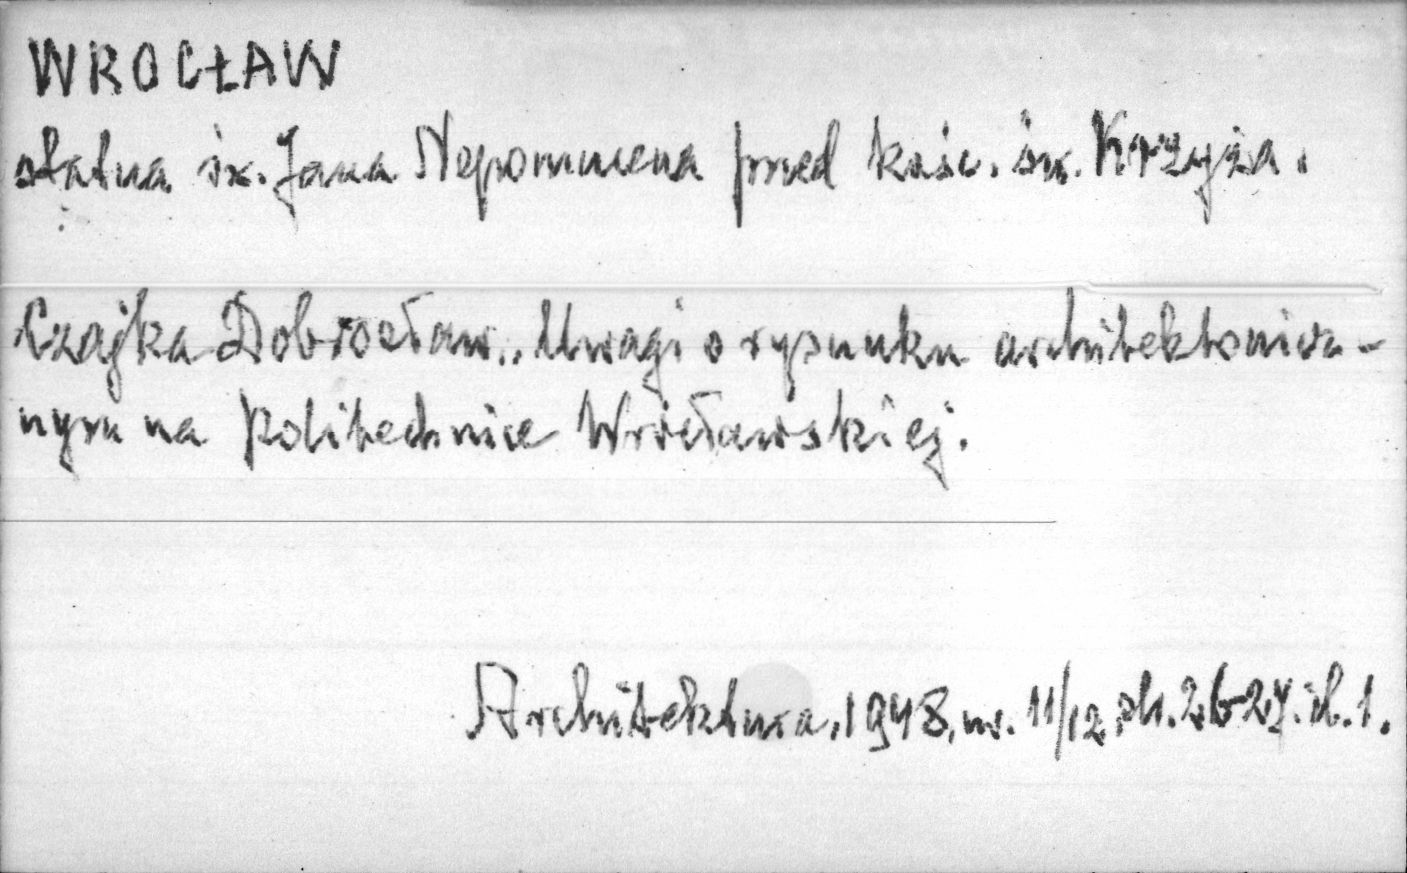 WROCŁAW
statua św. Jana Nepomucena przed kośc. św. Krzyża.
Czajka Dobrosław. Uwagi o rysunku architektonicz-
nym na Politechnice Wrocławskiej.
Architektura, 1948, nr. 11/12, str. 26-27. il. 1.